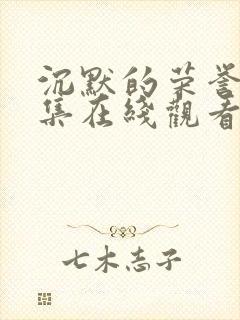 沉默的荣誉
集在綫觀看
七木志子